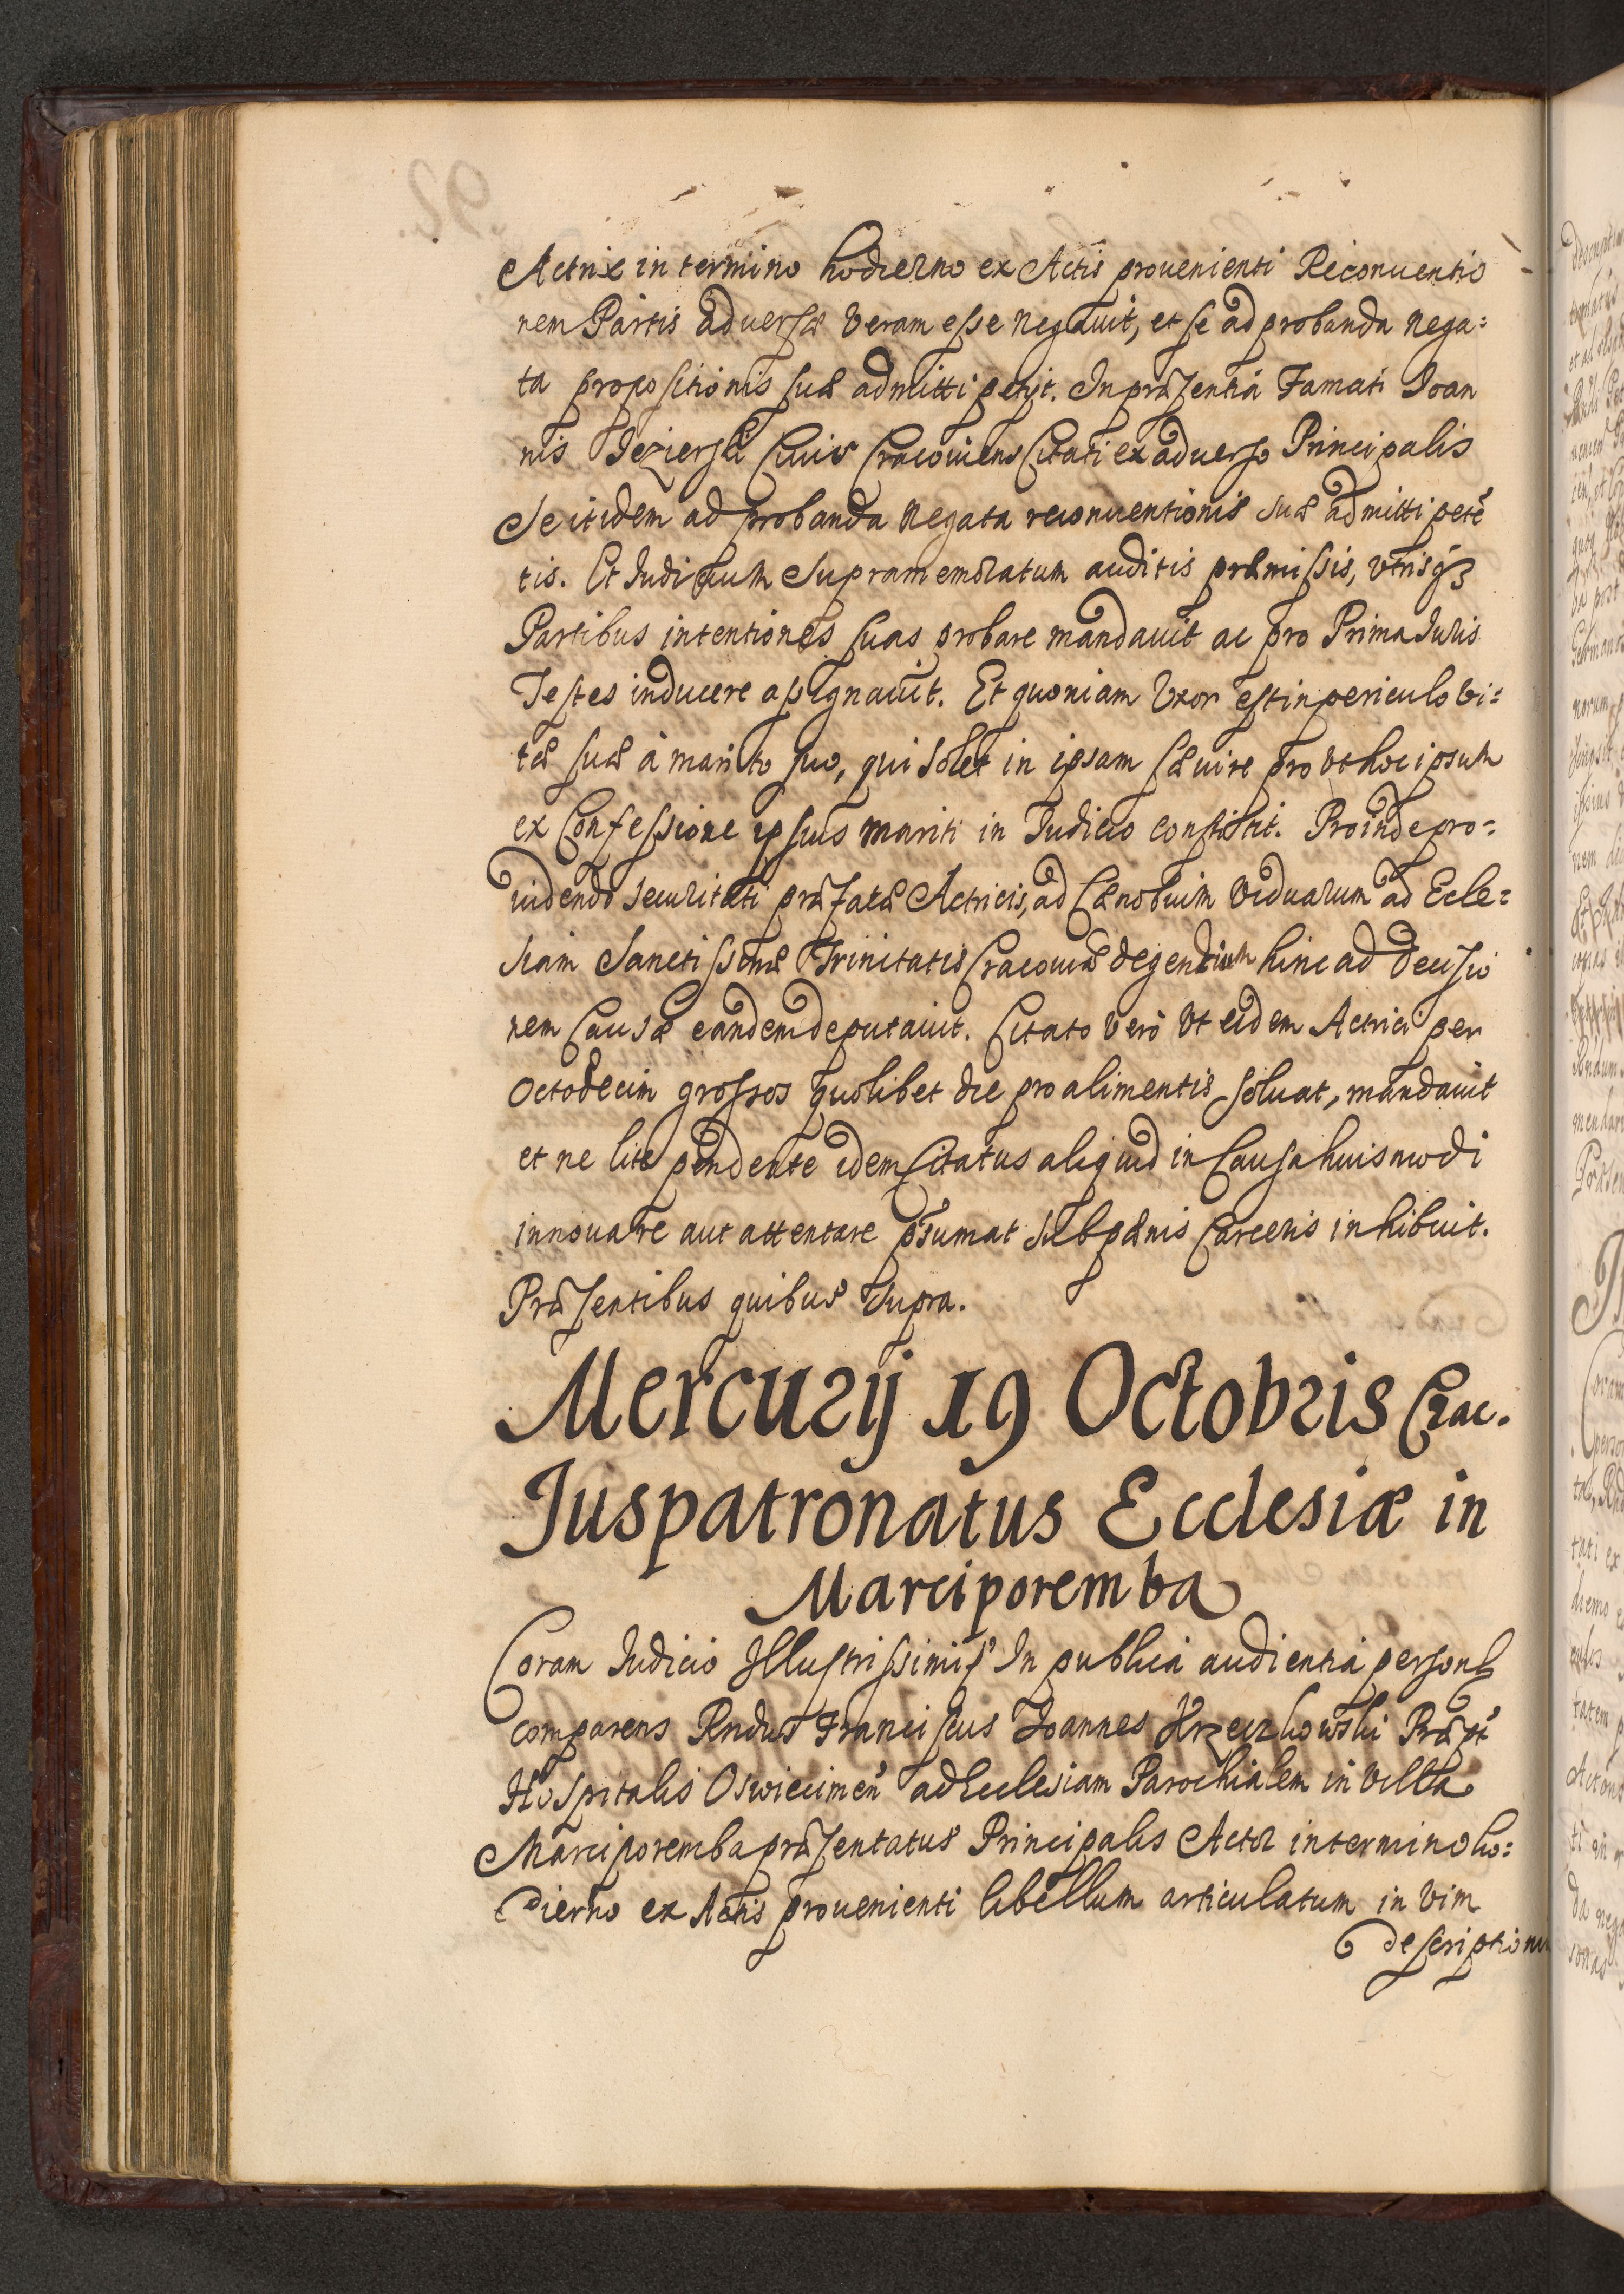 Actrix in termino hodierno ex Actis prouenienti Reconuentio
nem Partis aduersæ Veram esse negauit, et se ad probanda nega=
ta propositionis suæ admitti petijt. In præsentiâ Famati Ioan
nis Jezierski Ciuis Cracouiens Citati ex aduerso Principalis
Se itidem ad probanda negata reconuentionis suæ admitti petē
tis. Et Iudicium Supramemoratum auditis præmissis, vtrisqꝫ
Partibus intentiones suas probare mandauit ac pro Prima Iuris
Testes inducere assignauit. Et quoniam Vxor est in periculo Vi=
tæ suæ à marito suo, qui solet in ipsam sæuire pro vt hoc ipsum
ex Confessione ipsius mariti in Iudicio constitit. Proinde pro=
uidendo securitati præfatæ Actricis, ad Cænobium Viduarum ad Eccle=
siam Sanctissimæ Trinitatis Cracouiæ degentium hinc ad decisio
nem Causæ eandem deputauit. Citato verò Vt eidem Actrici per
Octodecim grossos quolibet die pro alimentis soluat, mandauit
et ne lite pendente idem Citatus aliquid in Causa huismodi
innouare aut attentare p̄sumat sub pænis Carceris inhibuit.
Præsentibus quibus Supra.
Mercurij 19 Octobris Crac.
Iuspatronatus Ecclesiæ in
Marciporemba
Coram Iudicio Illustrissimi In publica audientia personł
comparens Rndus Franciscus Joannes Krzeczkowski Præpt
Hospitalis Oswiecimen ad Ecclesiam Parochialem in Villa
Marciporemba præsentatus Principalis Actor in termino ho=
dierno ex Actis prouenienti libellum articulatum in Vim
descriptionis